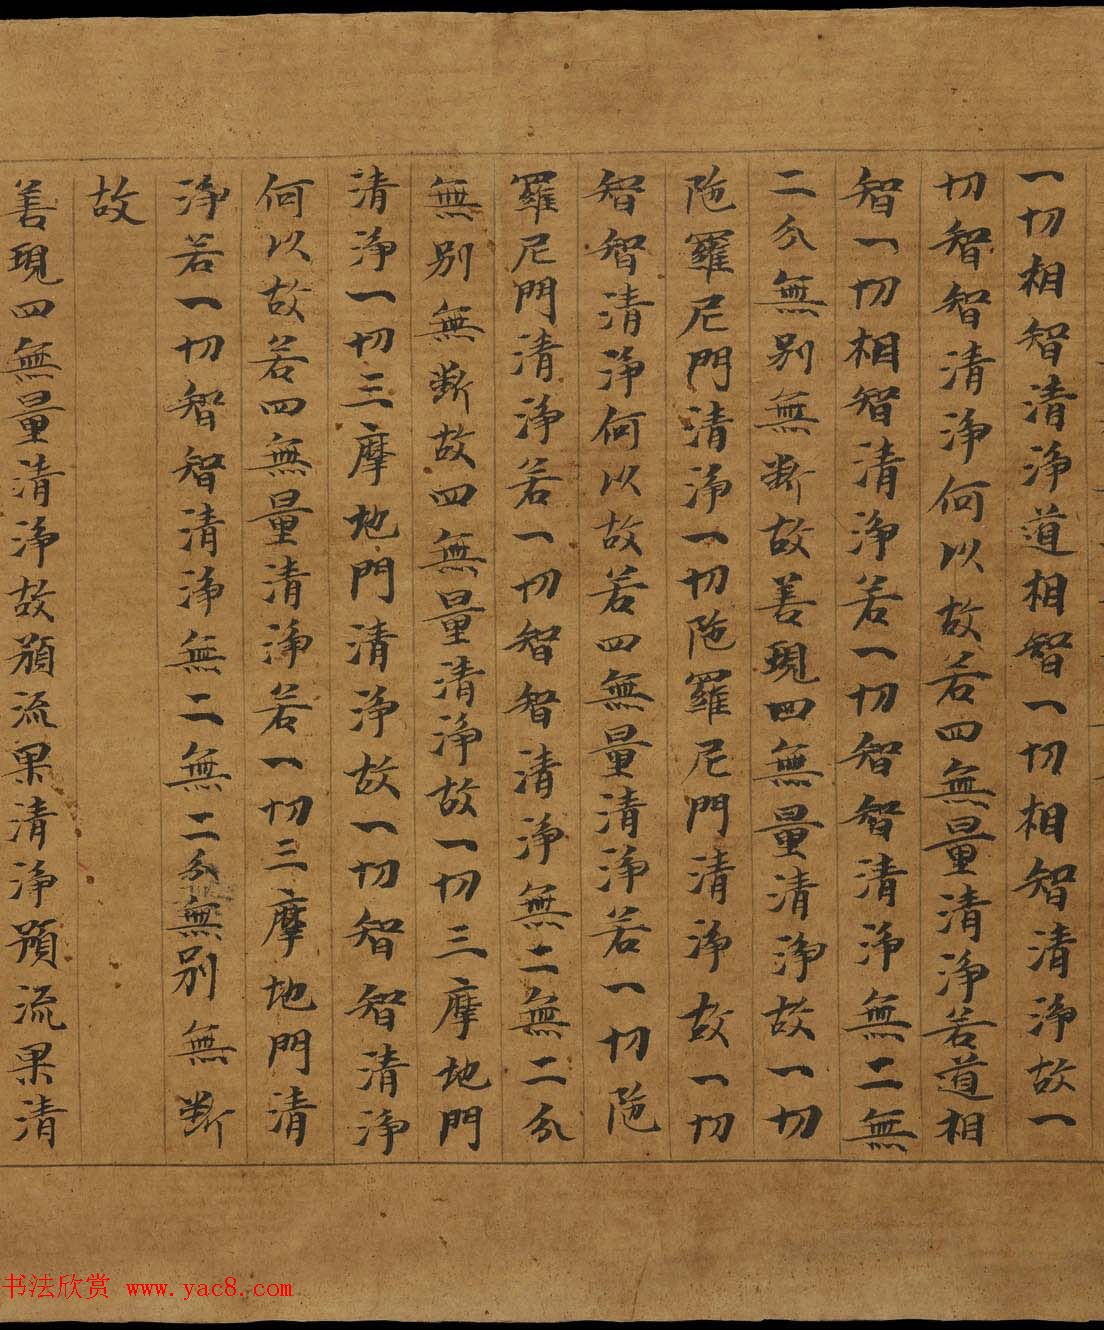 一切相智清淨道相智一切相智清淨故一
切智智清淨何以故若四無量清淨若道相
智一切相智清淨若一切智智清淨無二無
二分無別無斷故善現四無量清淨故一切
陁羅尼門清淨一切陁羅尼門清淨故一切
智智清淨何以故若四無量清淨若一切陁
羅尼門清淨若一切智智清淨無二無二分
無別無斷故四無量清淨故一切三摩地門
清淨一切三摩地門清淨故一切智智清淨
何以故若四無量清淨若一切三摩地門清
淨若一切智智清淨無二無二分無別無斷
故
善現四無量清淨故預流果清淨預流果清
书法欣赏 www.yac8.com